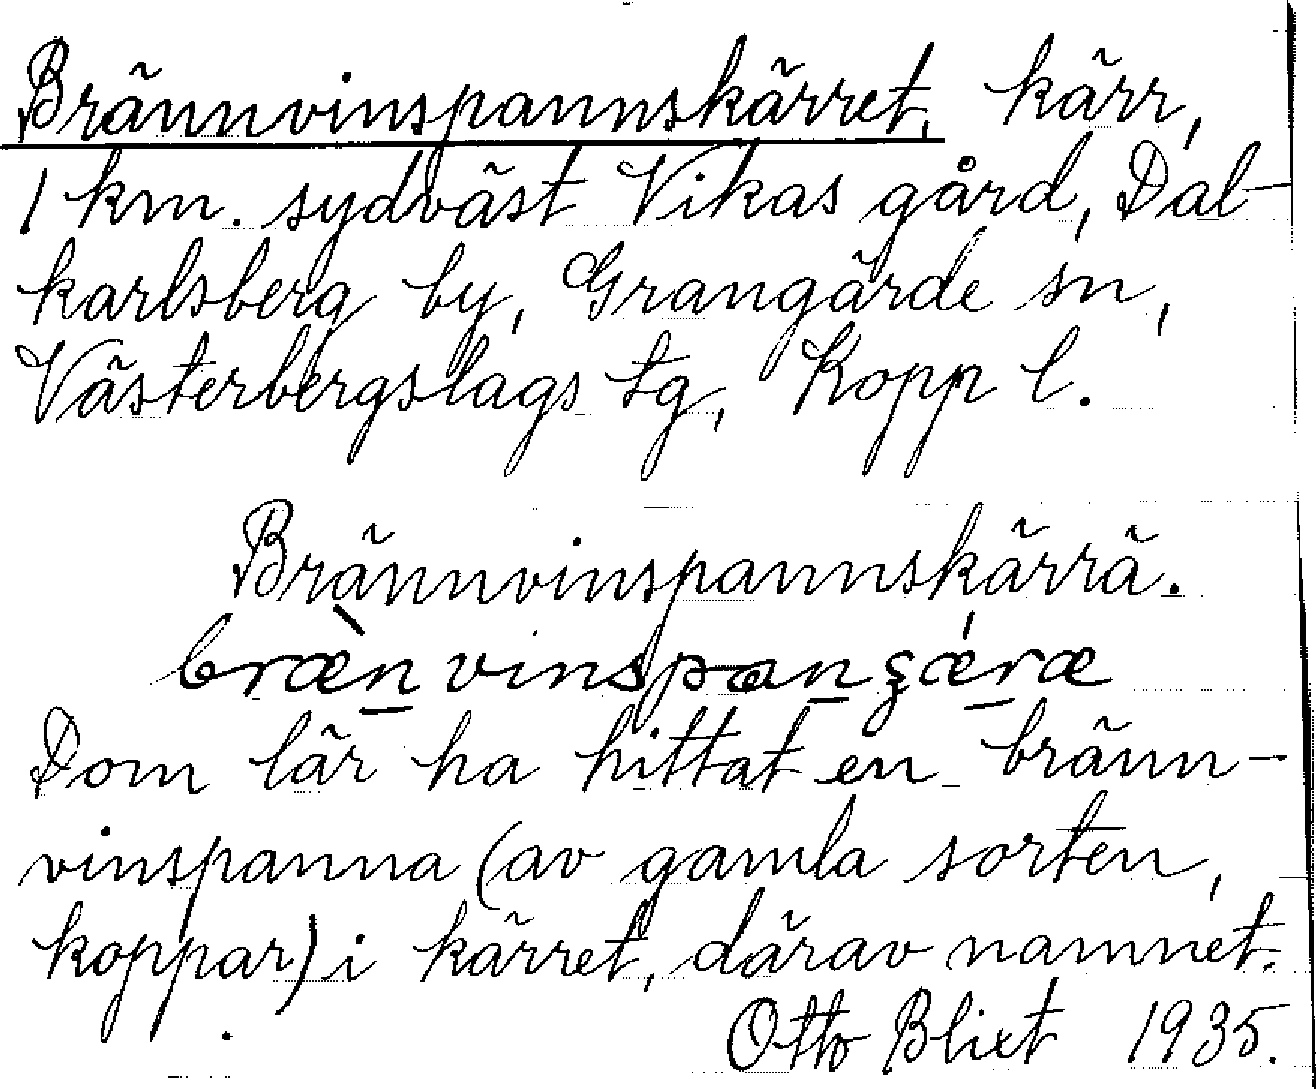 Brännvinspannskärret, kärr,
1 km. sydväst Vikas gård, Dal-
karlsberg by, Grangärde sn,
Västerbergslags tg, Kopp l.
Brännvinspannskärrä.
bræ̀n vinspanʂǽræ
Dom lär ha hittat en bränn-
vinspanna (av gamla sorten,
koppar) i kärret, därav namnet.
Otto Blixt 1935.